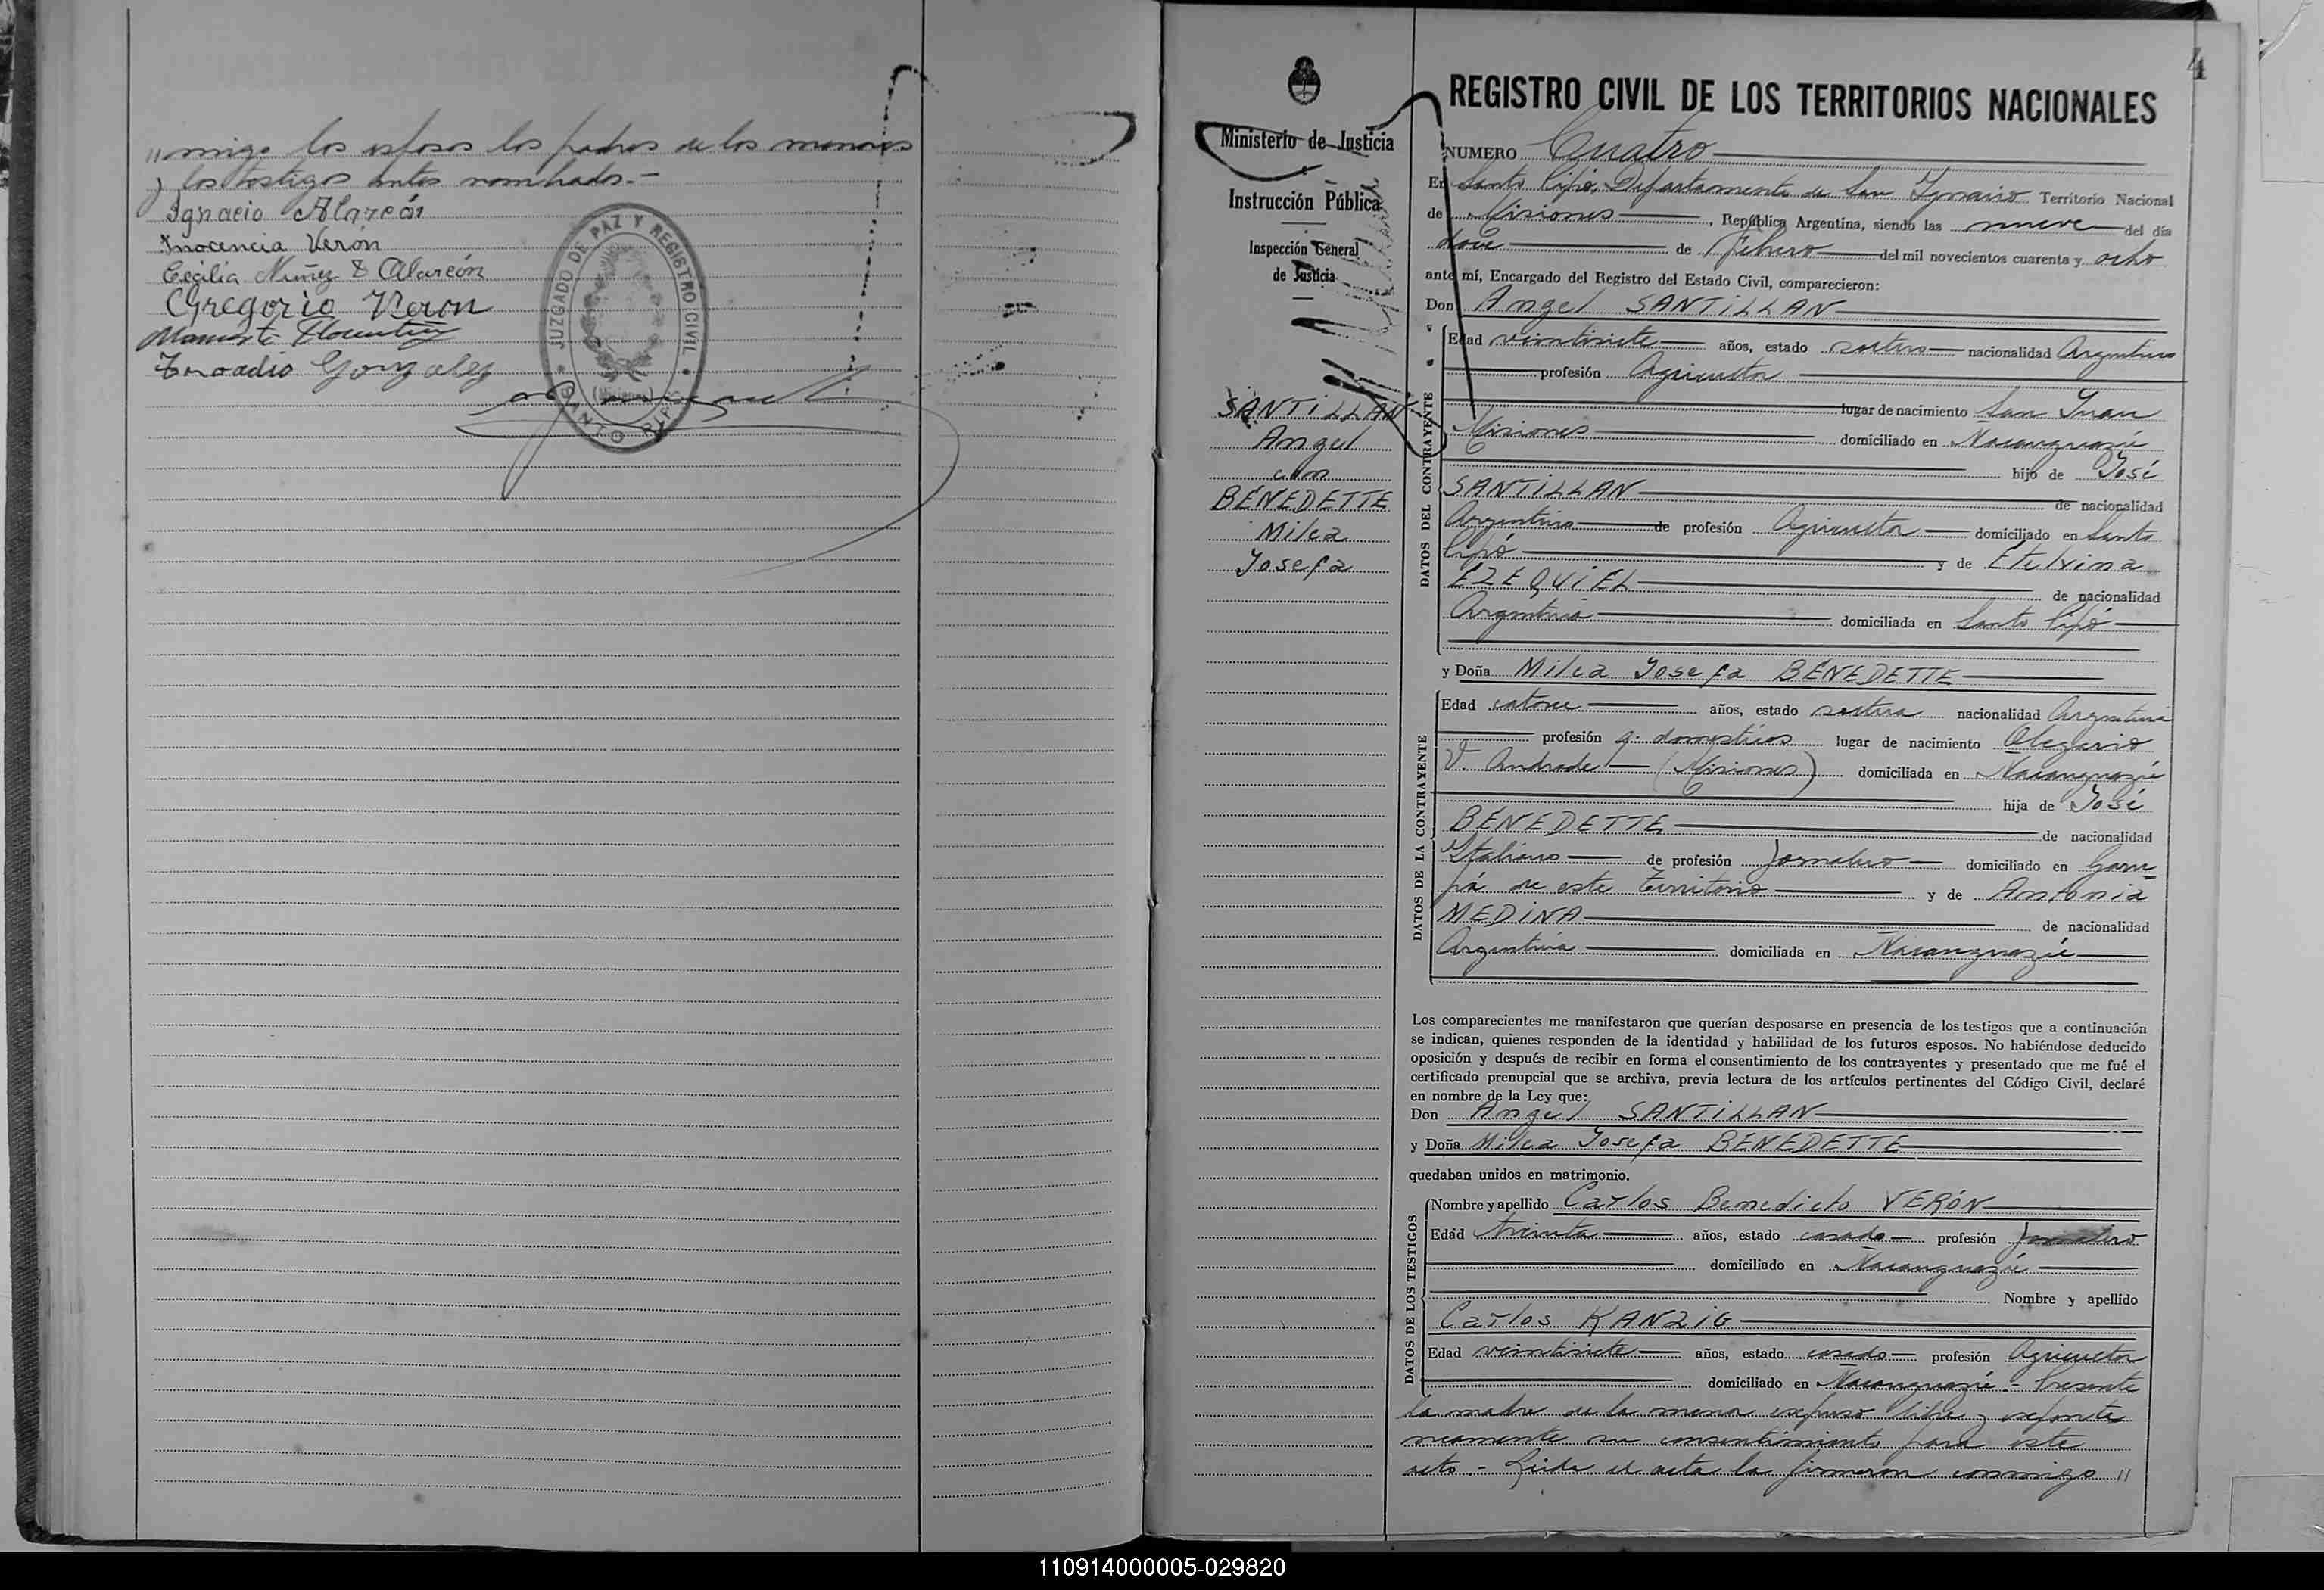 "migo los esposos los padres de los menores
y los testigos antes nombrados.-
Ignacio Alarcón
Inocencia Verón
Cecilia Núñez D Alarcón
Gregorio Veron
Florentin
Gonzalez
JUZGADO DE PAZ Y REGISTRO CIVIL
(Misiones)
SANTO PIPÓ
4
Ministerio de Justicia
Instrucción Pública
Inspección General
de Justicia
SANTILLAN
Angel
con
BENEDETTE
Milca
Josefa
REGISTRO CIVIL DE LOS TERRITORIOS NACIONALES
NUMERO Cuatro
En Santo Pipó, Departamento de San Ygnacio Territorio Nacional
de Misiones, República Argentina, siendo las nueve del día
doce de febrero del mil novecientos cuarenta y ocho
ante mí, Encargado del Registro del Estado Civil, comparecieron:
Don Angel SANTILLAN
DATOS DEL CONTRAYENTE
Edad veintisiete años, estado soltero nacionalidad Argentino
profesión Agricultor
lugar de nacimiento San Juan
Misiones domiciliado en Ñacanguazú
hijo de José
SANTILLAN de nacionalidad
Argentino de profesión Agricultor domiciliado en Santo
Pipó y de Etelvina
EZEQUIEL de nacionalidad
Argentina domiciliada en Santo Pipó
y Doña Milca Josefa BENEDETTE
DATOS DE LA CONTRAYENTE
Edad catorce años, estado soltera nacionalidad Argentina
profesión q. domésticos lugar de nacimiento Olegario
V. Andrade (Misiones) domiciliada en Ñacanguazú
hija de José
BENEDETTE de nacionalidad
Italiano de profesión Jornalero domiciliado en Garu-
pá de este Territorio y de Antonia
MEDINA de nacionalidad
Argentina domiciliada en Ñacanguazú
Los comparecientes me manifestaron que querían desposarse en presencia de los testigos que a continuación
se indican, quienes responden de la identidad y habilidad de los futuros esposos. No habiéndose deducido
oposición y después de recibir en forma el consentimiento de los contrayentes y presentado que me fué el
certificado prenupcial que se archiva, previa lectura de los artículos pertinentes del Código Civil, declaré
en nombre de la Ley que:
Don Angel SANTILLAN
y Doña Milca Josefa BENEDETTE
quedaban unidos en matrimonio.
DATOS DE LOS TESTIGOS
Nombre y apellido Carlos Benedicto VERÓN
Edad treinta años, estado casado profesión Jornalero
domiciliado en Ñacanguazú
Nombre y apellido
Carlos KANZIG
Edad veintisiete años, estado casado profesión Agricultor
domiciliado en Ñacanguazú.- Presente
la madre de la menor expreso libre y esponta
neamente su consentimiento para este
acto.- Leída el acta la firmaron conmigo "
110914000005-029820